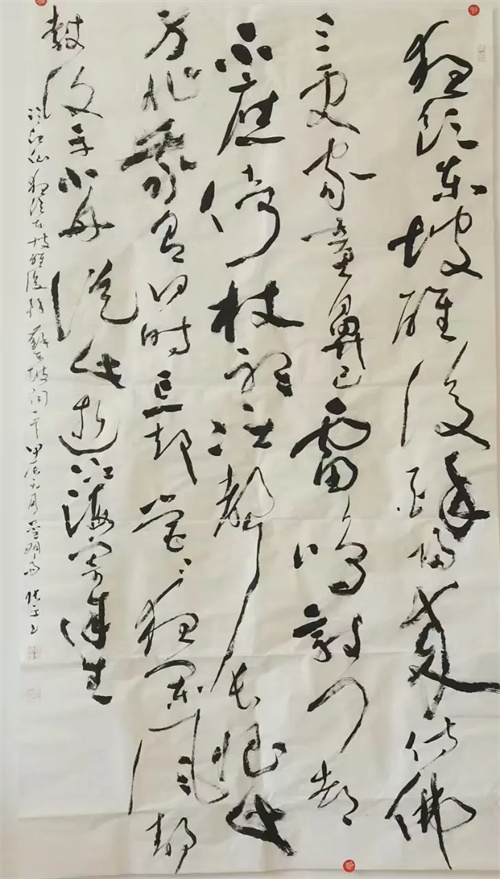 夜饮东坡醒復醉歸来仿佛
三更家童鼻已雷鳴敲门都
不應倚杖聽江聲长恨此
身非我有何時忘却营〻夜阑风静
縠纹平小舟従此逝江海寄余生
临江仙夜饮东坡醒復醉苏东坡词一首甲辰六月